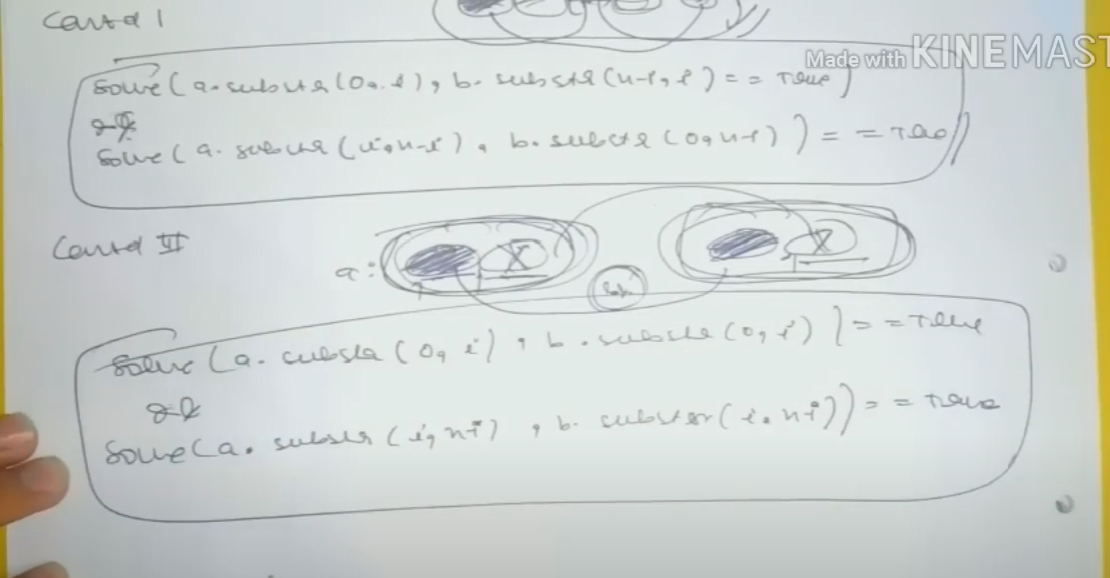 Cond I
Made with KINEMAST
Solve (a.substr(0, i), b.substr(n-i, i) == True)
&&
Solve (a.substr(i, n-i), b.substr(0, n-i)) == True
Cond II
a:
Solve (a.substr(0, i), b.substr(0, i)) == True
&&
Solve (a.substr(i, n-i), b.substr(i, n-i)) == True